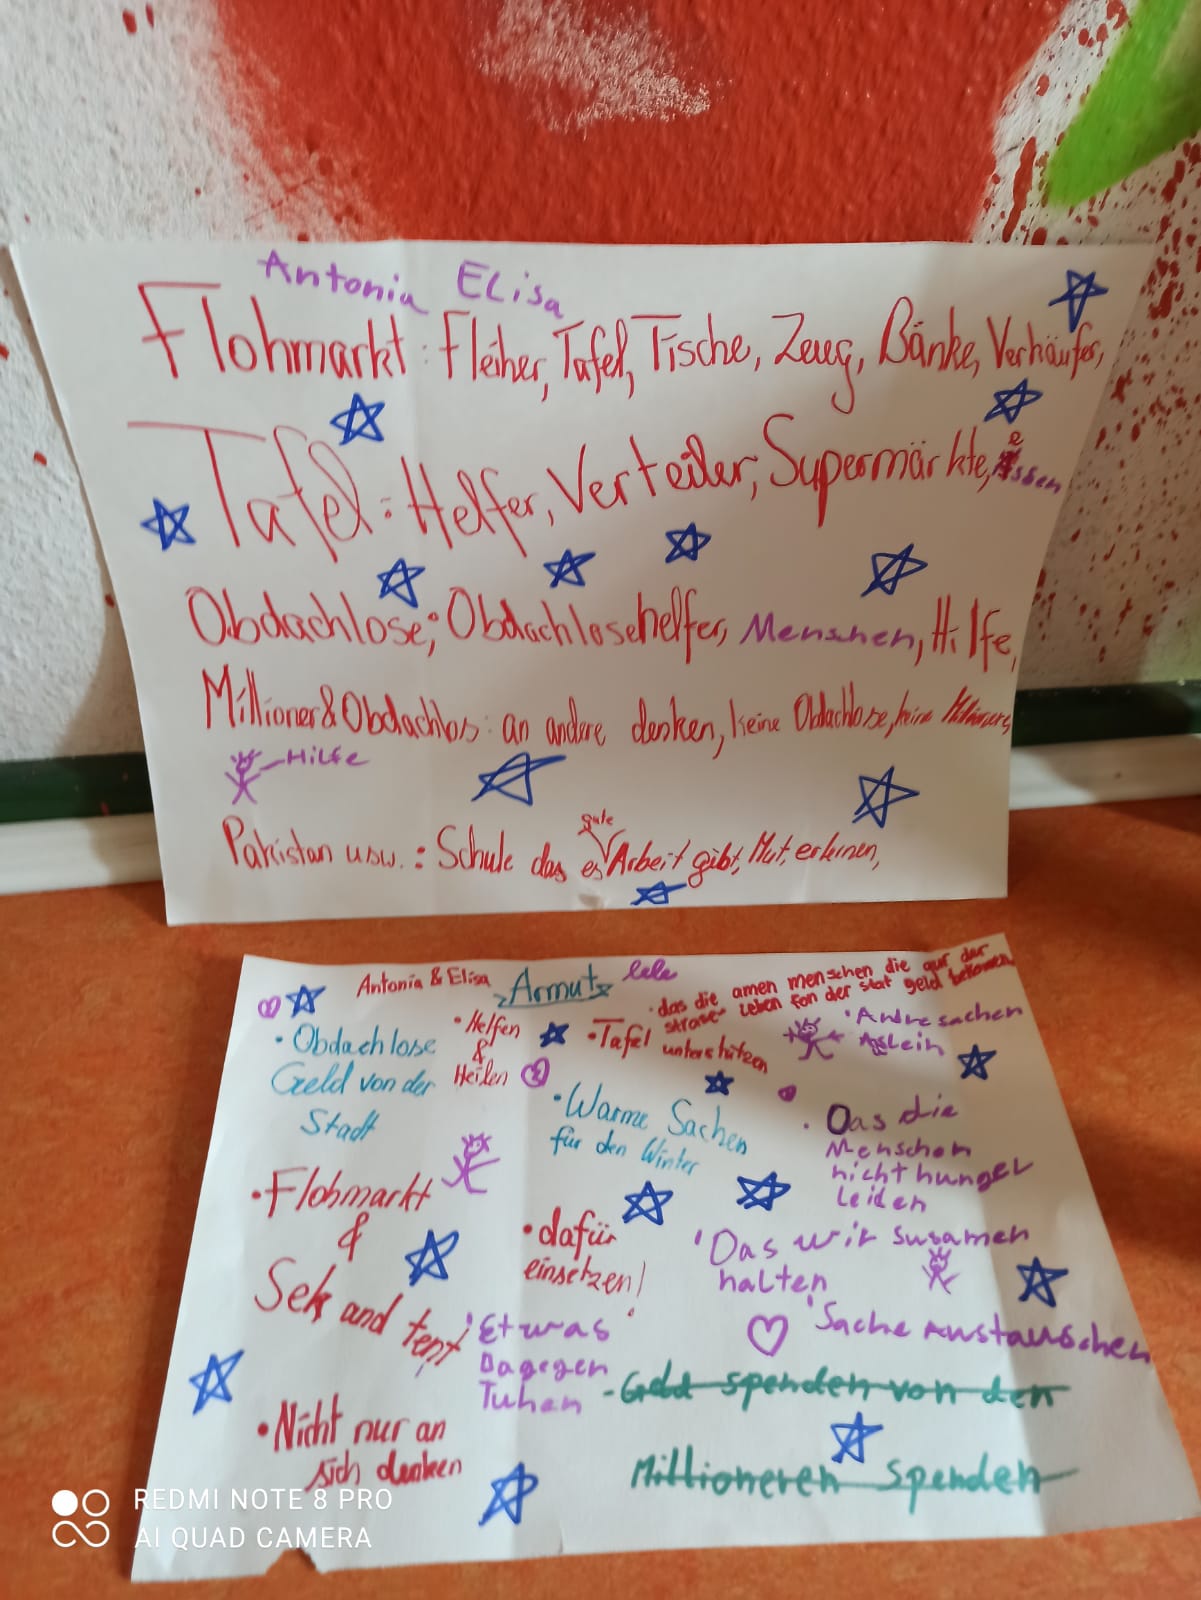 Antonia Elisa
Flohmarkt: Fleiher, Tafel, Tische, Zeug, Bänke, Verkäufer,
Tafel: Helfer, Verteiler, Supermärkte, essen
Obdachlose; Obdachlosehelfer, Menschen, Hilfe,
Millioner & Obdachlos: an andere denken, keine Obdachlose, keine Millionere,
Hilfe
gute
Pakistan usw.: Schule das es Arbeit gibt, Mut, erlernen,
Antonia & Elisa Armut lele
• Obdachlose
Geld von der
Stadt
• Helfen
&
Heilen
• Tafel
unterstützen
• das die amen menschen die auf der
strase leben fon der stat geld bekomen
• Andre sachen
• Warme Sachen
für den Winter
• Das die
Menschen
nicht hunger
Leiden
• Flohmarkt
&
• dafür
einsetzen!
• Das wir susamen
halten
• Etwas
Dagegen
Tuhen
• Sache Austauschen
• Nicht nur an
sich denken
- Geld spenden von den
Millioneren spenden
REDMI NOTE 8 PRO
AI QUAD CAMERA